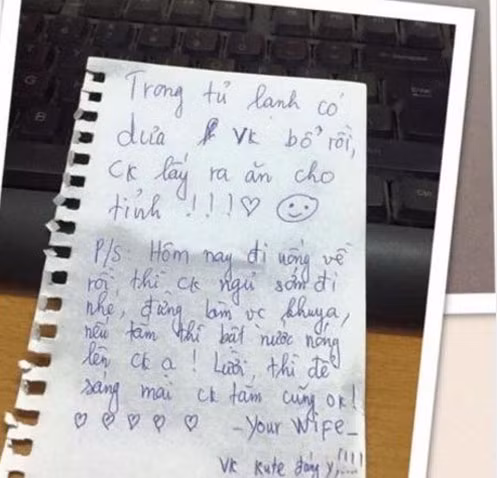 Trong tủ lạnh có
dưa VK bổ rồi,
CK lấy ra ăn cho
tỉnh !!!♡
P/S: Hôm nay đi uống về
rồi, thì ck ngủ sớm đi
nhé, đừng làm vc khuya,
nếu tắm thì bật nước nóng
lên ck ạ! Lười, thì để
sáng mai ck tắm cũng ok!
♡ ♡ ♡ ♡ ♡ -Your Wife-
VK kute đáng y,!!!!